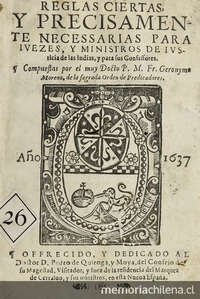 REGLAS CIERTAS,
Y PRECISAMEN-
TE NECESSARIAS PARA
IVEZES, Y MINISTROS DE IVS-
ticia de las Indias, y para sus Confessores.
¶ Compuestas por el muy Docto P. M. Fr. Geronymo
Moreno, de la sagrada Orden de Predicadores.
Año 1637
26
¶ OFFRECIDO, Y DEDICADO AL
Doctor D. Pedro de Quiroga, y Moya, del Consejo de
su Magestad, Visitador, y juez de la residencia del Marques
de Cerraluo, y sus ministros, en esta Nueva España.
memoriachilena.cl